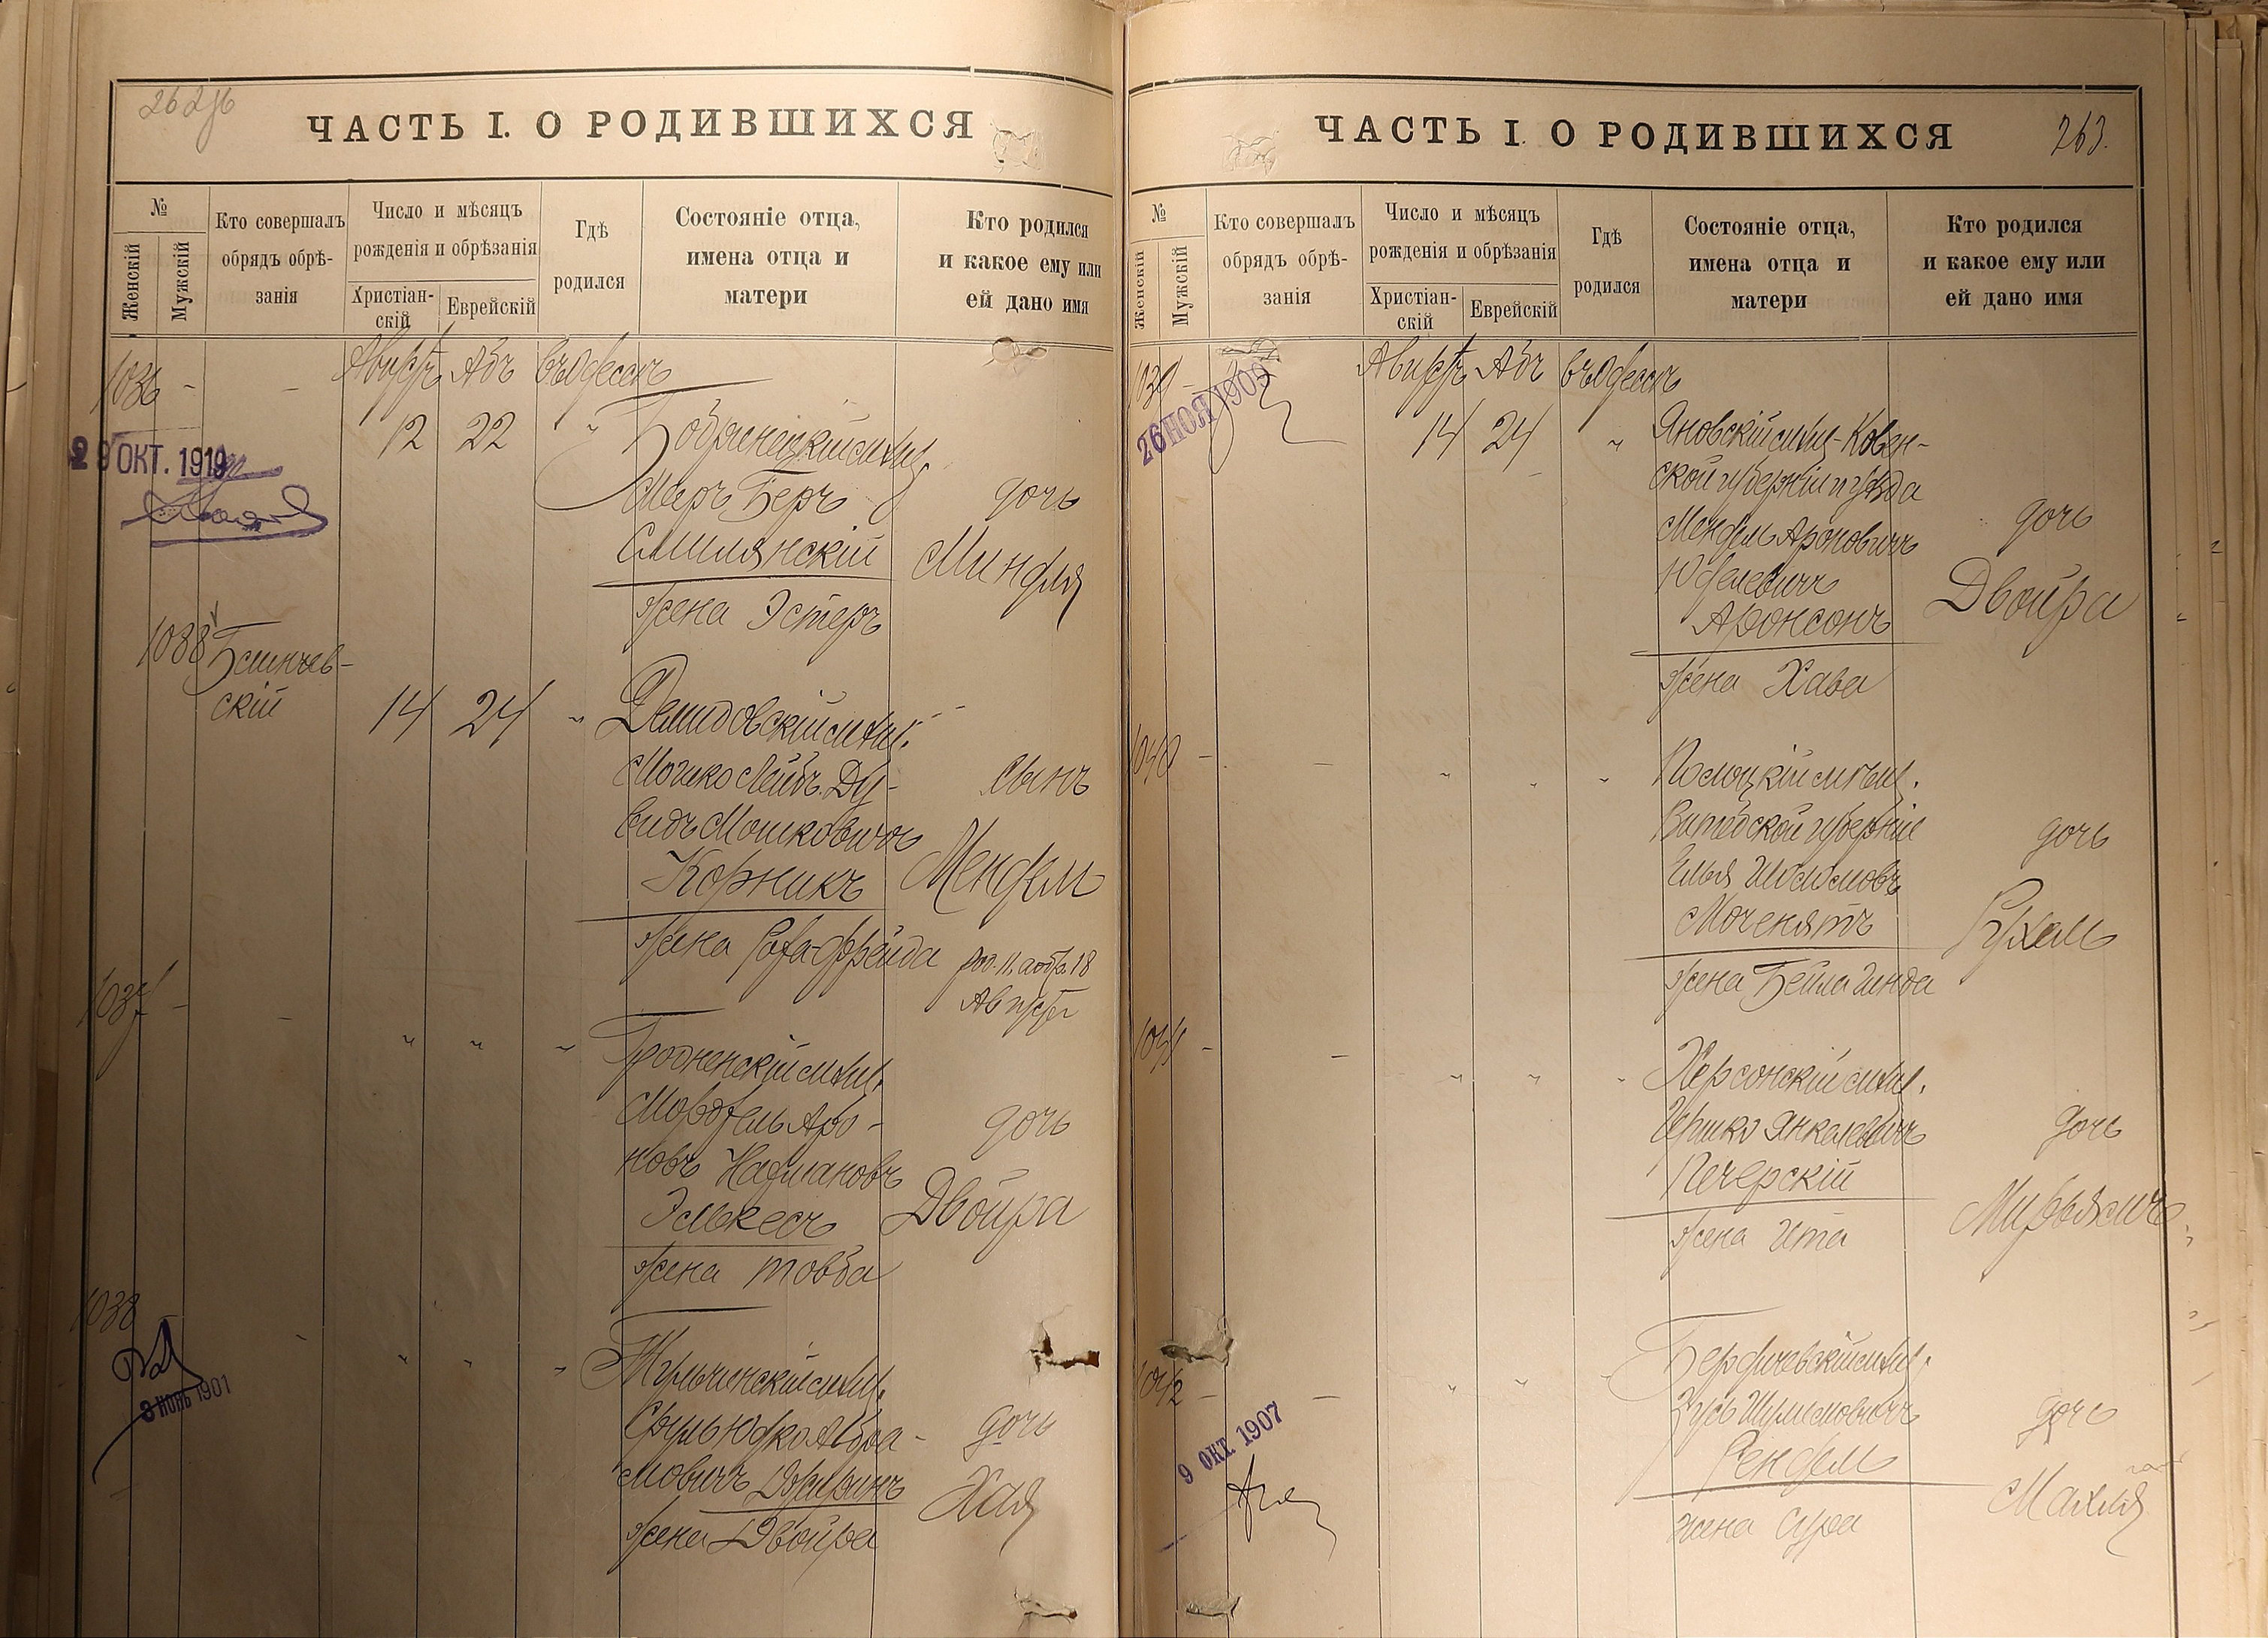 262об
ЧАСТЬ I. О РОДИВШИХСЯ
№
Женскій
Мужскій
Кто совершалъ
обрядъ обрѣ-
занія
Число и мѣсяцъ
рожденія и обрѣзанія
Христіан-
скій
Еврейскій
Гдѣ
родился
Состояніе отца,
имена отца и
матери
Кто родился
и какое ему или
ей дано имя
1036 - - Августъ Абъ въ Одессѣ
12 22 " Бобринецкій мѣщ.
Меръ Беръ дочь
Смилянскій Миндля
жена Эстеръ
29 ОКТ. 1919
1088
скій
14 24 " Демидовскій мѣщ.
Мошко Лейбъ Ду- сынъ
видъ Мошковичъ
Корникъ Мендель
жена Фрейда 18
Августа
1037 - - " " " Гродненскій мѣщ.
Мордхель Аро- дочь
новъ Нахмановъ
Элькесъ Двойра
жена Товба
1038 - " " " Тульчинскій мѣщ.
Абра- дочь
мовичъ Хая
жена Двойра
3 ІЮНЬ 1901
ЧАСТЬ I. О РОДИВШИХСЯ
263.
№
Женскій
Мужскій
Кто совершалъ
обрядъ обрѣ-
занія
Число и мѣсяцъ
рожденія и обрѣзанія
Христіан-
скій
Еврейскій
Гдѣ
родился
Состояніе отца,
имена отца и
матери
Кто родился
и какое ему или
ей дано имя
1039 - Августъ Абъ въ Одессѣ
26 НОЯ 1909
14 24 " Яновскій мѣщ. Ковен-
ской губерніи и уѣзда
Мендель Ароновичъ дочь
Юделевичъ Двойра
Аронсонъ
жена Хава
1040 - - " " " Полоцкій мѣщ.
Витебской губерніи дочь
Илья
Моченятъ Рухель
жена Бейла Гинда
1041 - - " " " Херсонскій мѣщ.
Гершко Янкелевичъ дочь
Печерскій
жена Ита
1042 - - " " " Бердичевскій мѣщ.
Зусь Шулимовичъ дочь
Рендель
жена Сура Махля
9 ОКТ. 1907